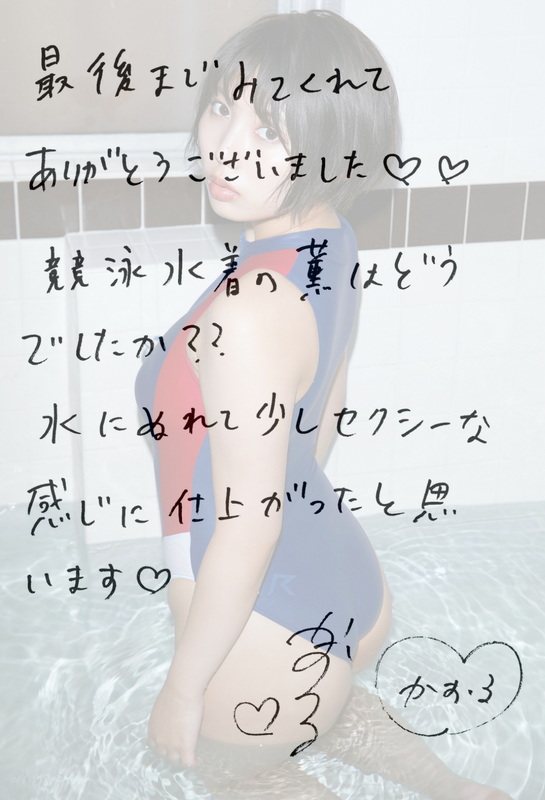 最後までみてくれて
ありがとうございました♡♡
競泳水着の薫はどう
でしたか??
水にぬれて少しセクシーな
感じに仕上がったと思
います♡
かおる